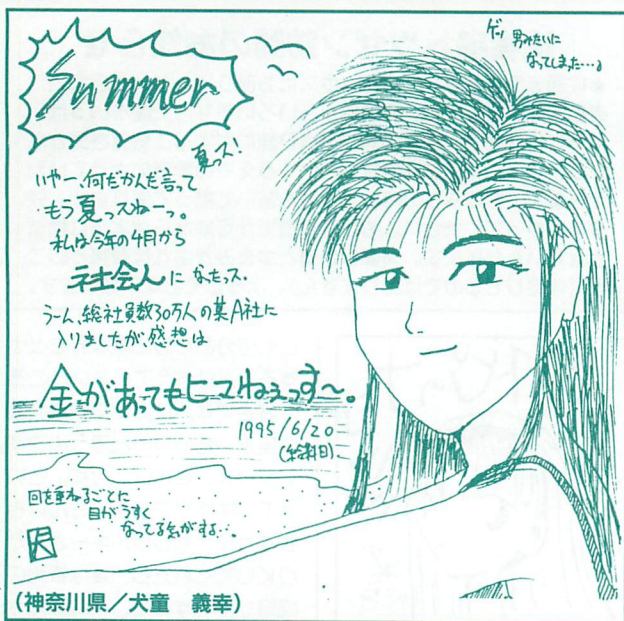 Summer
夏っス!
ゲッ 男みたいに
なってしまった…。
いやー、何だかんだ言って
もう夏っスねーっ。
私は今年の4月から
社会人になったっス.
うーん、総社員数30万人の某A社に
入りましたが、感想は
金があってもヒマねぇっす〜。
1995/6/20
(給料日)
回を重ねるごとに
目がうすく
なってる気がする…。
(神奈川県/犬童 義幸)